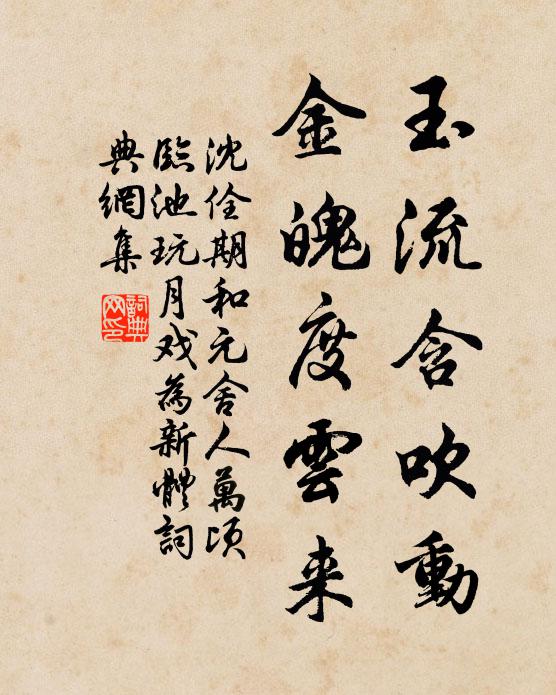 玉流含吹動
金魄度雲来
沈佺期和元舍人萬頃
臨池玩月戏為新體詞
典網集
詞典
网印